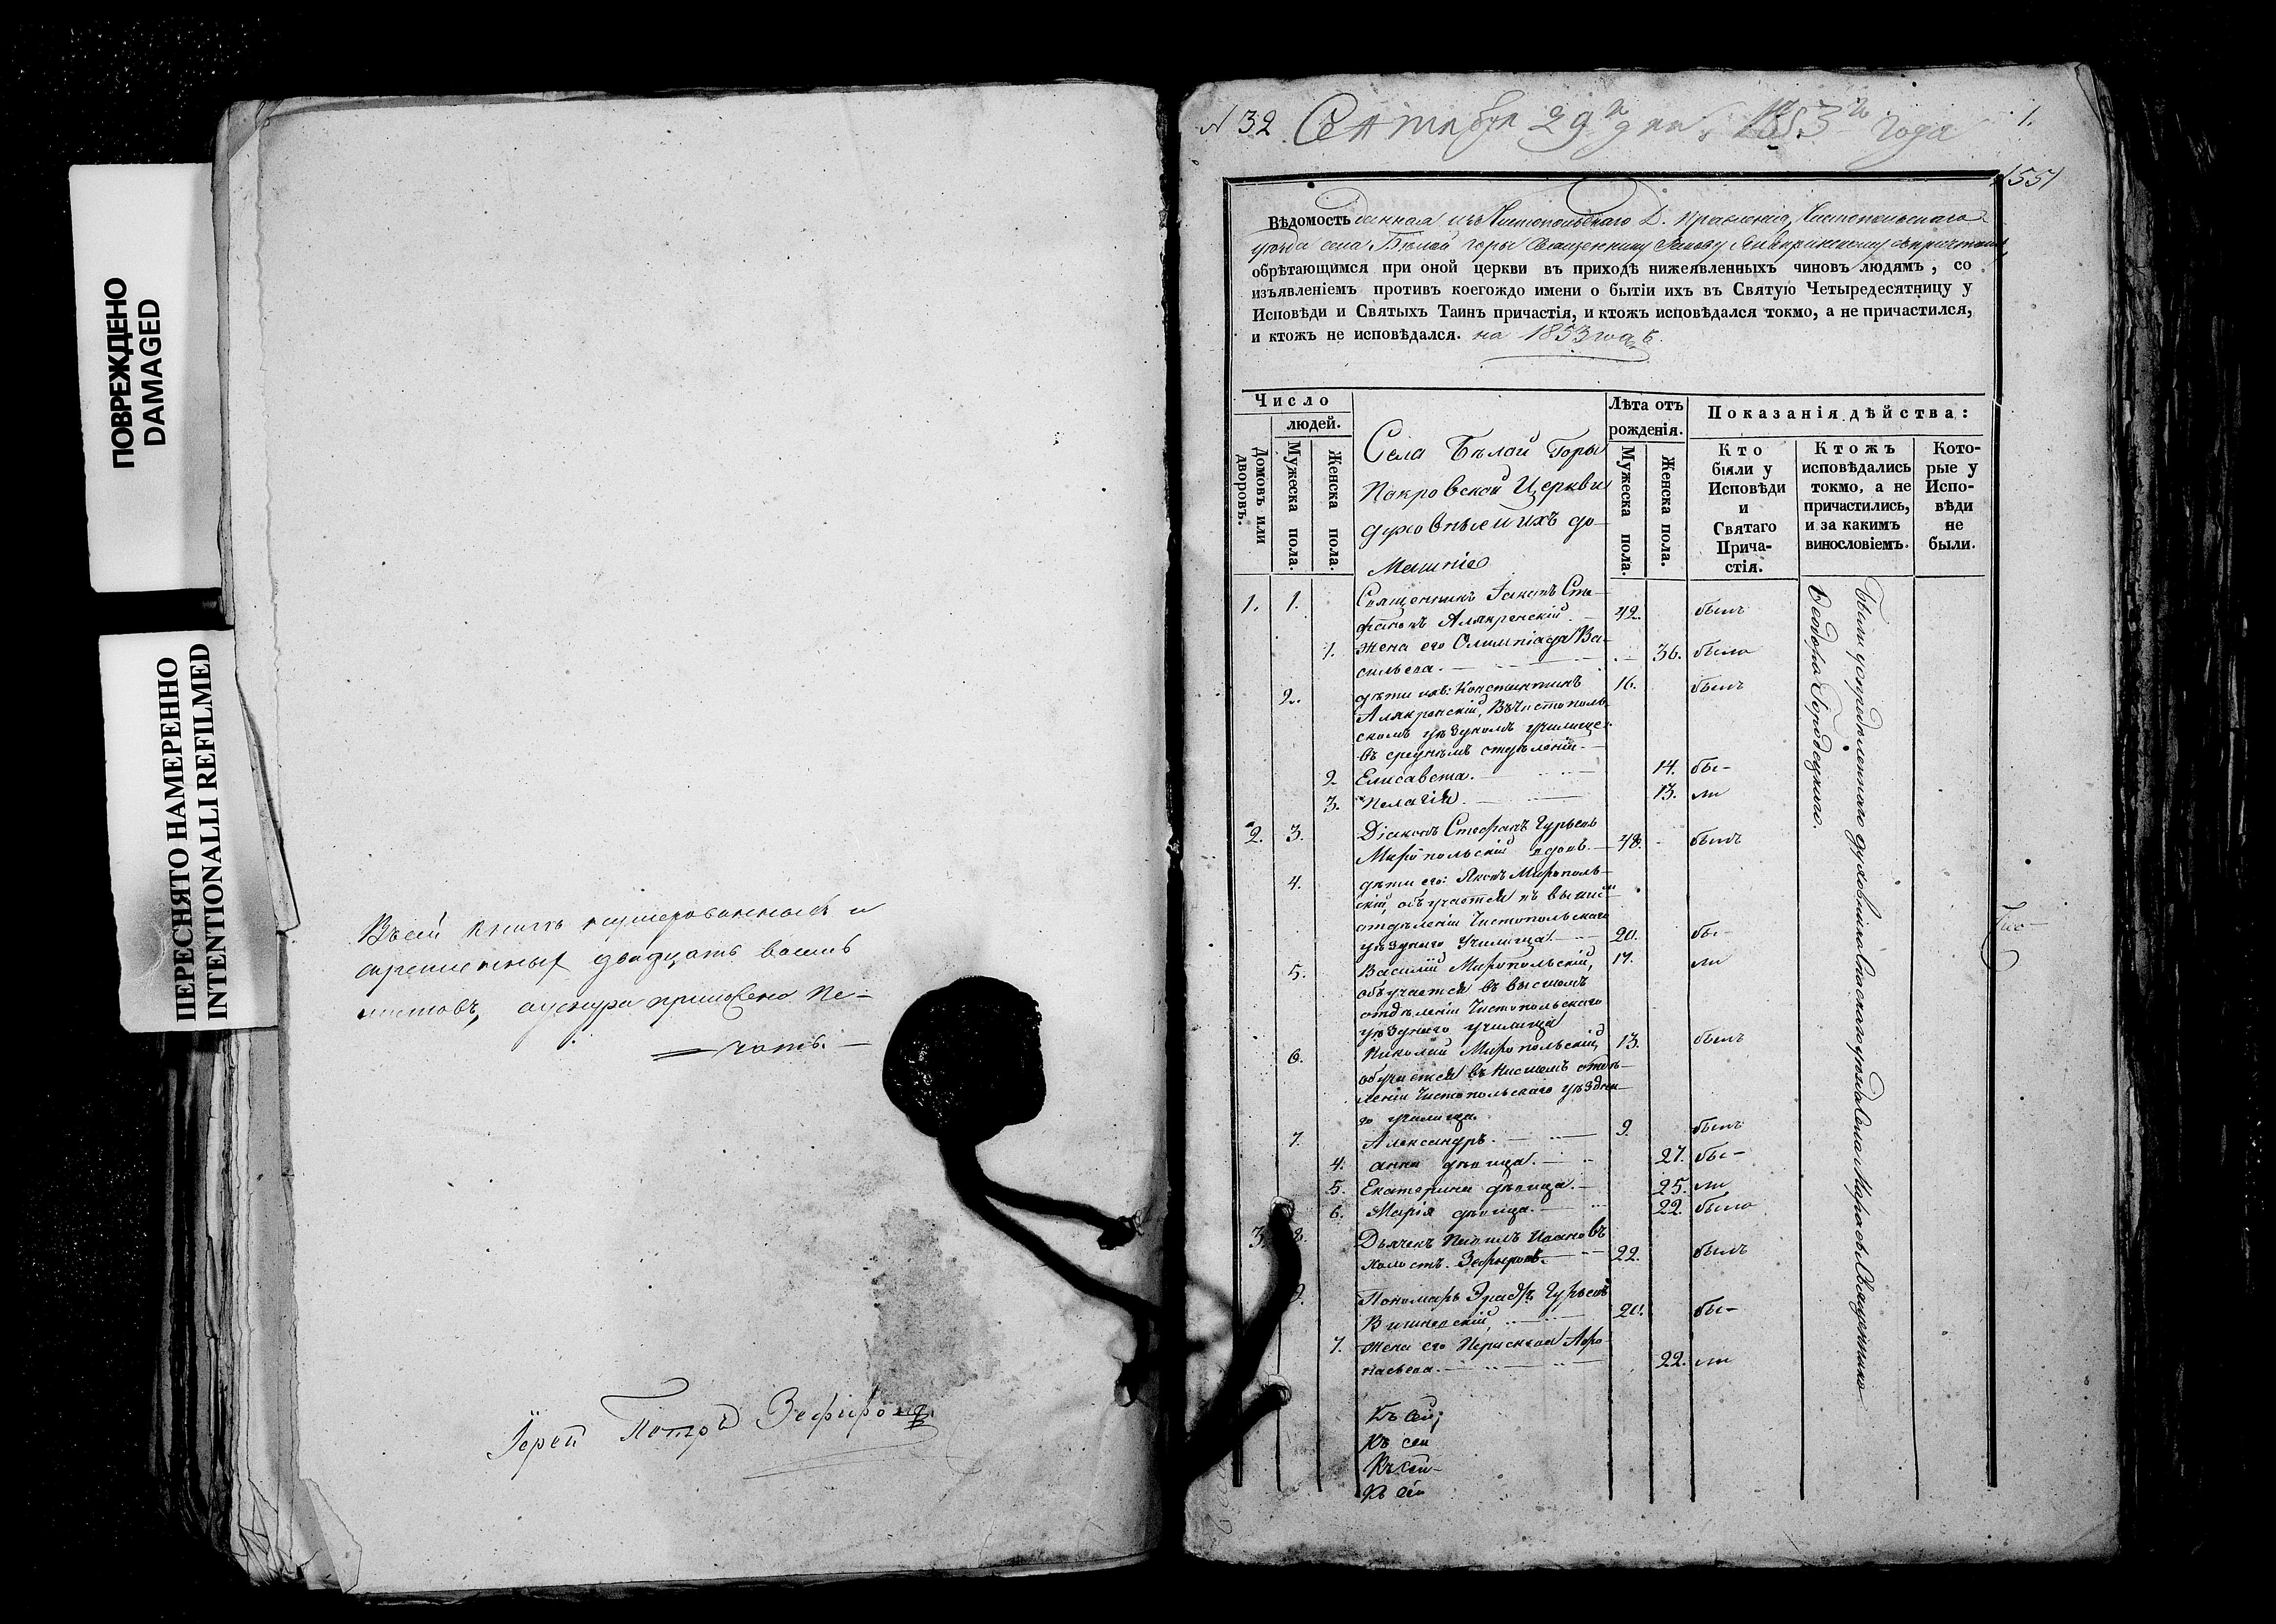 ПОВРЕЖДЕНО
DAMAGED
ПЕРЕСНЯТО НАМЕРЕННО
INTENTIONALLI REFILMED
Въ сей книгѣ нумерованныхъ и
скрепленныхъ двадцать восемь
листовъ, оу снура приложена пе-
чать.
Іерей Петръ Зефировъ
№ 32 Сентября 29 дня 1853 года 1.
1551
Вѣдомость данная изъ Чистопольскаго Д. Правленія, Чистопольскаго
уѣзда села Бѣлой горы Священнику Іакову съ причтомъ
обрѣтающимся при оной церкви въ приходѣ нижеявленныхъ чиновъ людямъ, со
изъявленіемъ противъ коегождо имени о бытіи ихъ въ Святую Четыредесятницу у
Исповѣди и Святыхъ Таинъ причастія, и ктожъ исповѣдался токмо, а не причастился,
и ктожъ не исповѣдался. на 1853 годъ.
Число
людей.
Домовъ или дворовъ.
Мужеска пола.
Женска пола.
Села Бѣлой Горы
Покровской Церкви
духовные и ихъ до-
машніе
Лѣта отъ
рожденія.
Мужеска пола.
Женска пола.
Показанія дѣйства:
Кто
были у
Исповѣди
и
Святаго
Прича-
стія.
Ктожъ
исповѣдались
токмо, а не
причастились,
и за какимъ
винословіемъ.
Кото-
рые у
Испо-
вѣди
не
были.
1. 1. Священникъ Іаковъ Сте-
фановъ Алякренскій 42. былъ
1. жена его Олимпіада Ва-
сильева. 36. была
2. дѣти ихъ: Константинъ 16. былъ
Алякренскій, въ Чистополь-
скомъ уѣздномъ училище
въ среднемъ отдѣленіи.
2. Елисавета. 14. бы-
3. Пелагія. 13. ли
2. 3. Діаконъ Стефанъ Гурьевъ
Миропольскій вдовъ. 48. былъ
4. дѣти его: Яковъ Мирополь-
скій, обучается въ высшемъ
отдѣленіи Чистопольскаго
уѣзднаго училища. 20. бы-
5. Василій Миропольскій, 17. ли
обучается въ высшемъ
отдѣленіи Чистопольскаго
уѣзднаго училища
6. Николай Миропольскій, 13. былъ
обучается въ нисшемъ отдѣ-
леніи Чистопольскаго уѣздна-
го училища.
7. Александръ. 9. былъ
4. Анна дѣвица. 27. бы-
5. Екатерина дѣвица. 25. ли
6. Марія дѣвица. 22. была
3. 8. Дьячекъ Ивановъ
холостъ. Зефировъ. 22. былъ
9. Пономарь Гурьевъ
Вишневскій, 20. бы-
7. жена его Параскева Афа-
насьева. 22. ли
Къ сей;
Къ сей
Къ сей
Къ сей
Были у опредѣленнаго духовника Спасскаго уѣзда Села Священника
Ѳеодора Городецкаго.